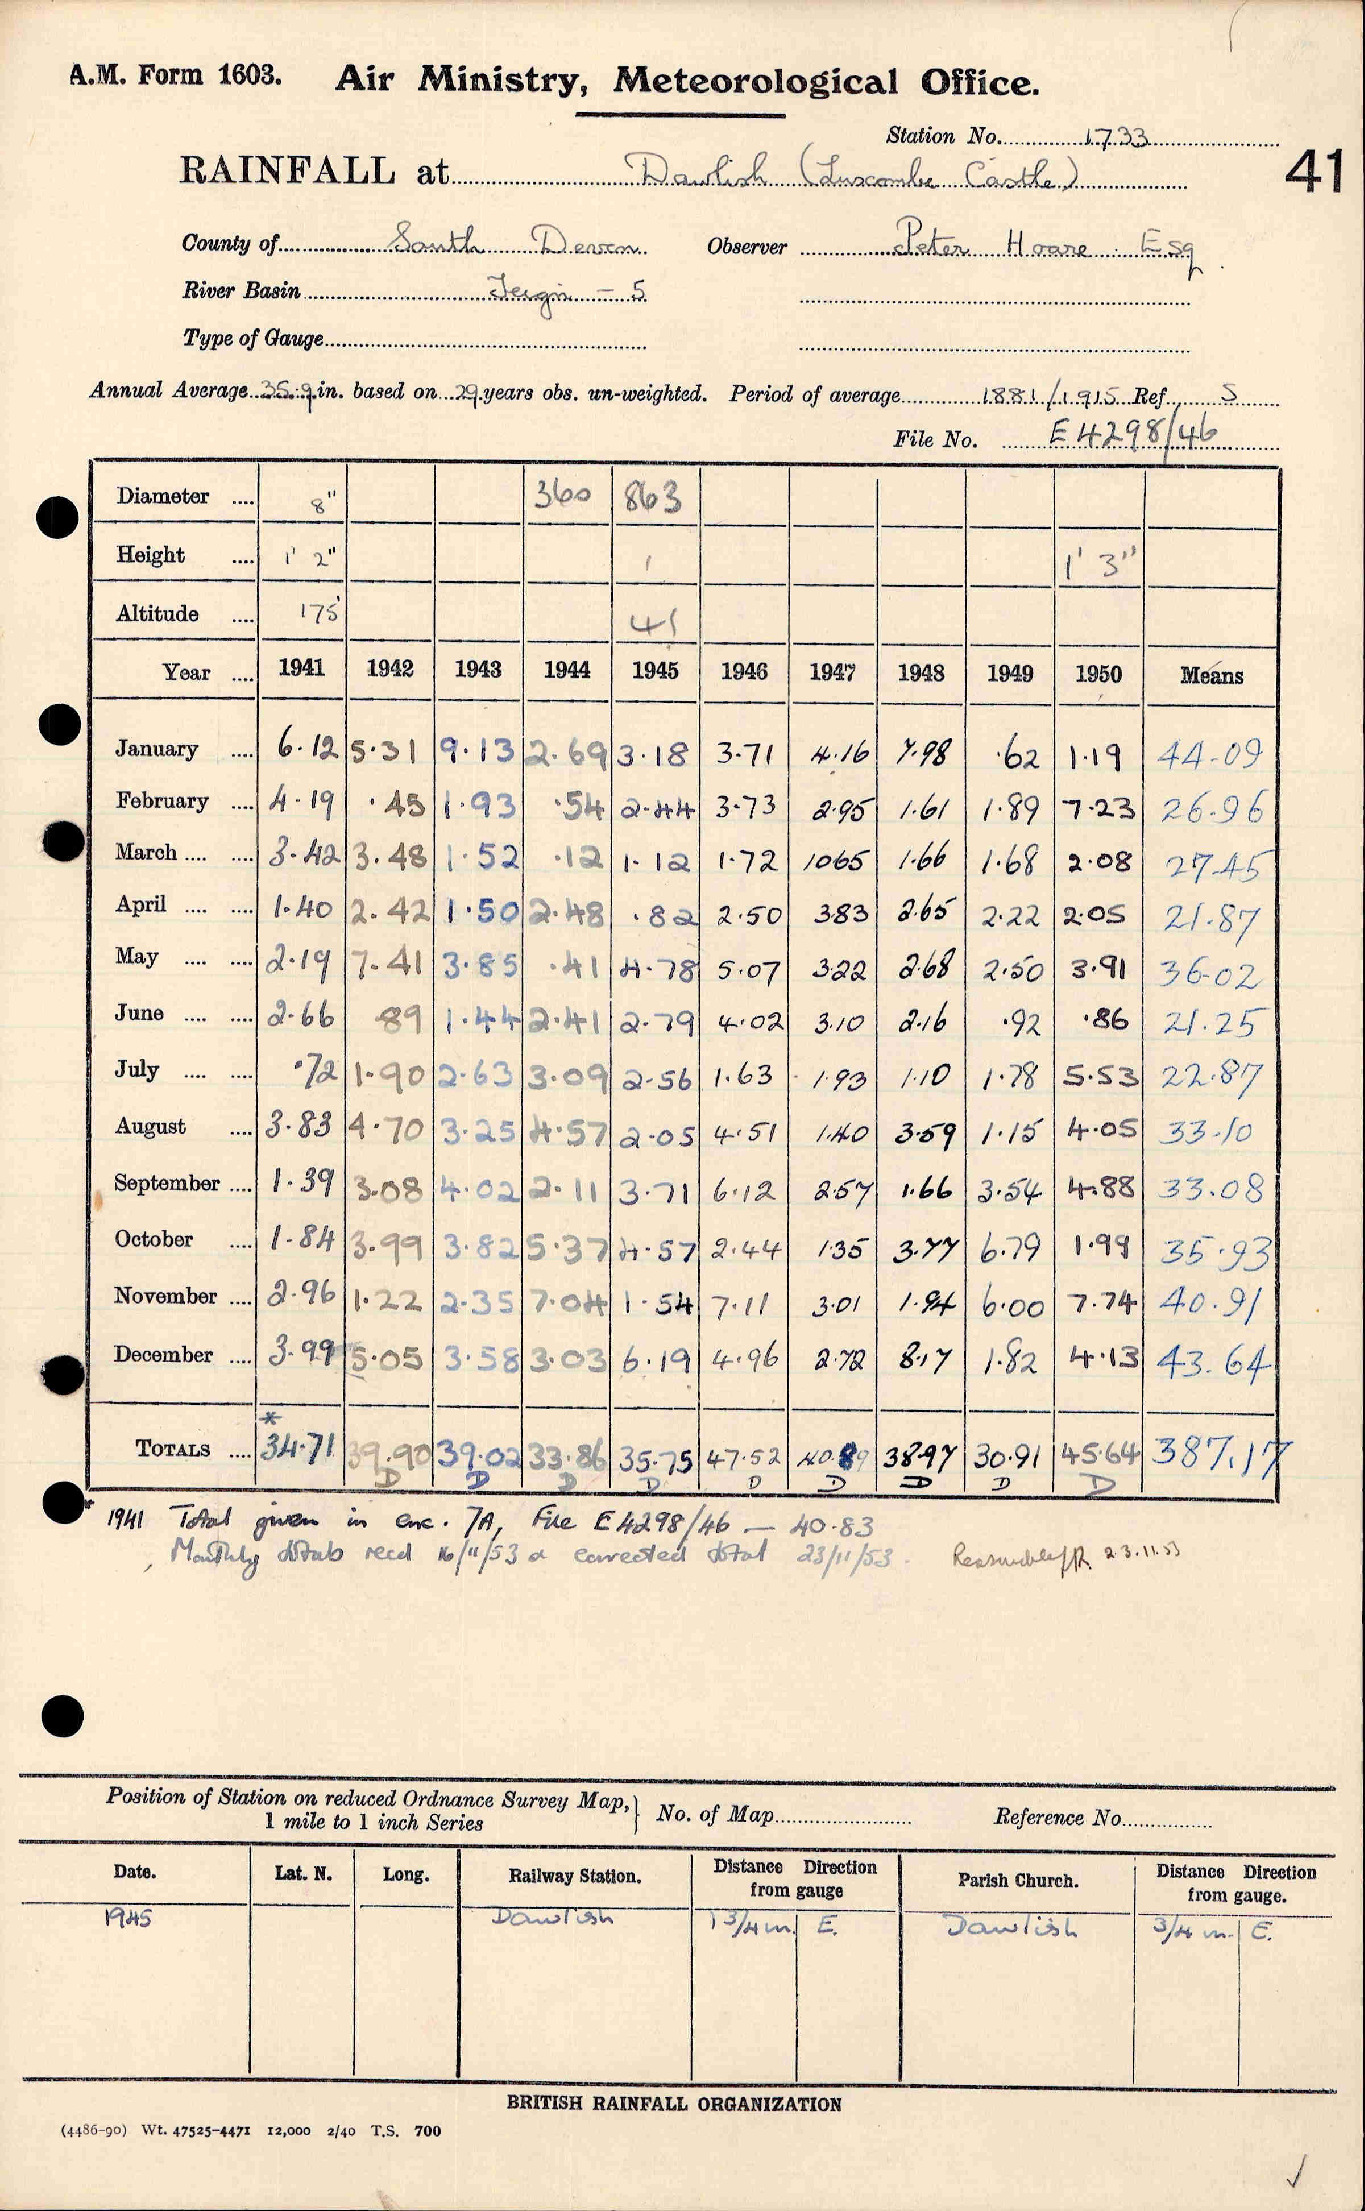 A.M. Form 1603. Air Ministry, Meteorological Office.
Station No. 1733
41
RAINFALL at Dawlish (Luscombe Castle)
County of South Devon Observer Peter Hoare Esq.
River Basin Teign - 5
Type of Gauge
Annual Average 35.9 in. based on 29 years obs. un-weighted. Period of average 1881/1915 Ref. S
File No. E4298/46
Diameter .... 8" 360 863
Height .... 1' 2" 1 1' 3"
Altitude .... 175' 41
Year .... 1941 1942 1943 1944 1945 1946 1947 1948 1949 1950 Means
January .... 6.12 5.31 9.13 2.69 3.18 3.71 4.16 7.98 .62 1.19 44.09
February .... 4.19 .45 1.93 .54 2.44 3.73 2.95 1.61 1.89 7.23 26.96
March .... .... 3.42 3.48 1.52 .12 1.12 1.72 1065 1.66 1.68 2.08 27.45
April .... .... 1.40 2.42 1.50 2.48 .82 2.50 383 2.65 2.22 2.05 21.87
May .... .... 2.19 7.41 3.85 .41 4.78 5.07 322 2.68 2.50 3.91 36.02
June .... .... 2.66 .89 1.44 2.41 2.79 4.02 3.10 2.16 .92 .86 21.25
July .... .... .72 1.90 2.63 3.09 2.56 1.63 1.93 1.10 1.78 5.53 22.87
August .... 3.83 4.70 3.25 4.57 2.05 4.51 1.40 3.59 1.15 4.05 33.10
September .... 1.39 3.08 4.02 2.11 3.71 6.12 2.57 1.66 3.54 4.88 33.08
October .... 1.84 3.99 3.82 5.37 4.57 2.44 1.35 3.77 6.79 1.99 35.93
November .... 2.96 1.22 2.35 7.04 1.54 7.11 3.01 1.94 6.00 7.74 40.91
December .... 3.99 5.05 3.58 3.03 6.19 4.96 2.72 8.17 1.82 4.13 43.64
*
TOTALS .... 34.71 39.90 39.02 33.86 35.75 47.52 40.89 38.97 30.91 45.64 387.17
D D D D D D D D D
* 1941 Total given in enc. 7A, File E4298/46 — 40.83
Monthly totals recd 16/11/53 & corrected total 23/11/53. Reasonable 23.11.53
Position of Station on reduced Ordnance Survey Map, 1 mile to 1 inch Series } No. of Map Reference No.
Date. Lat. N. Long. Railway Station. Distance Direction from gauge Parish Church. Distance Direction from gauge.
1945 Dawlish 1 3/4 m. E. Dawlish 3/4 m. E.
BRITISH RAINFALL ORGANIZATION
(4486-90) Wt. 47525-4471 12,000 2/40 T.S. 700